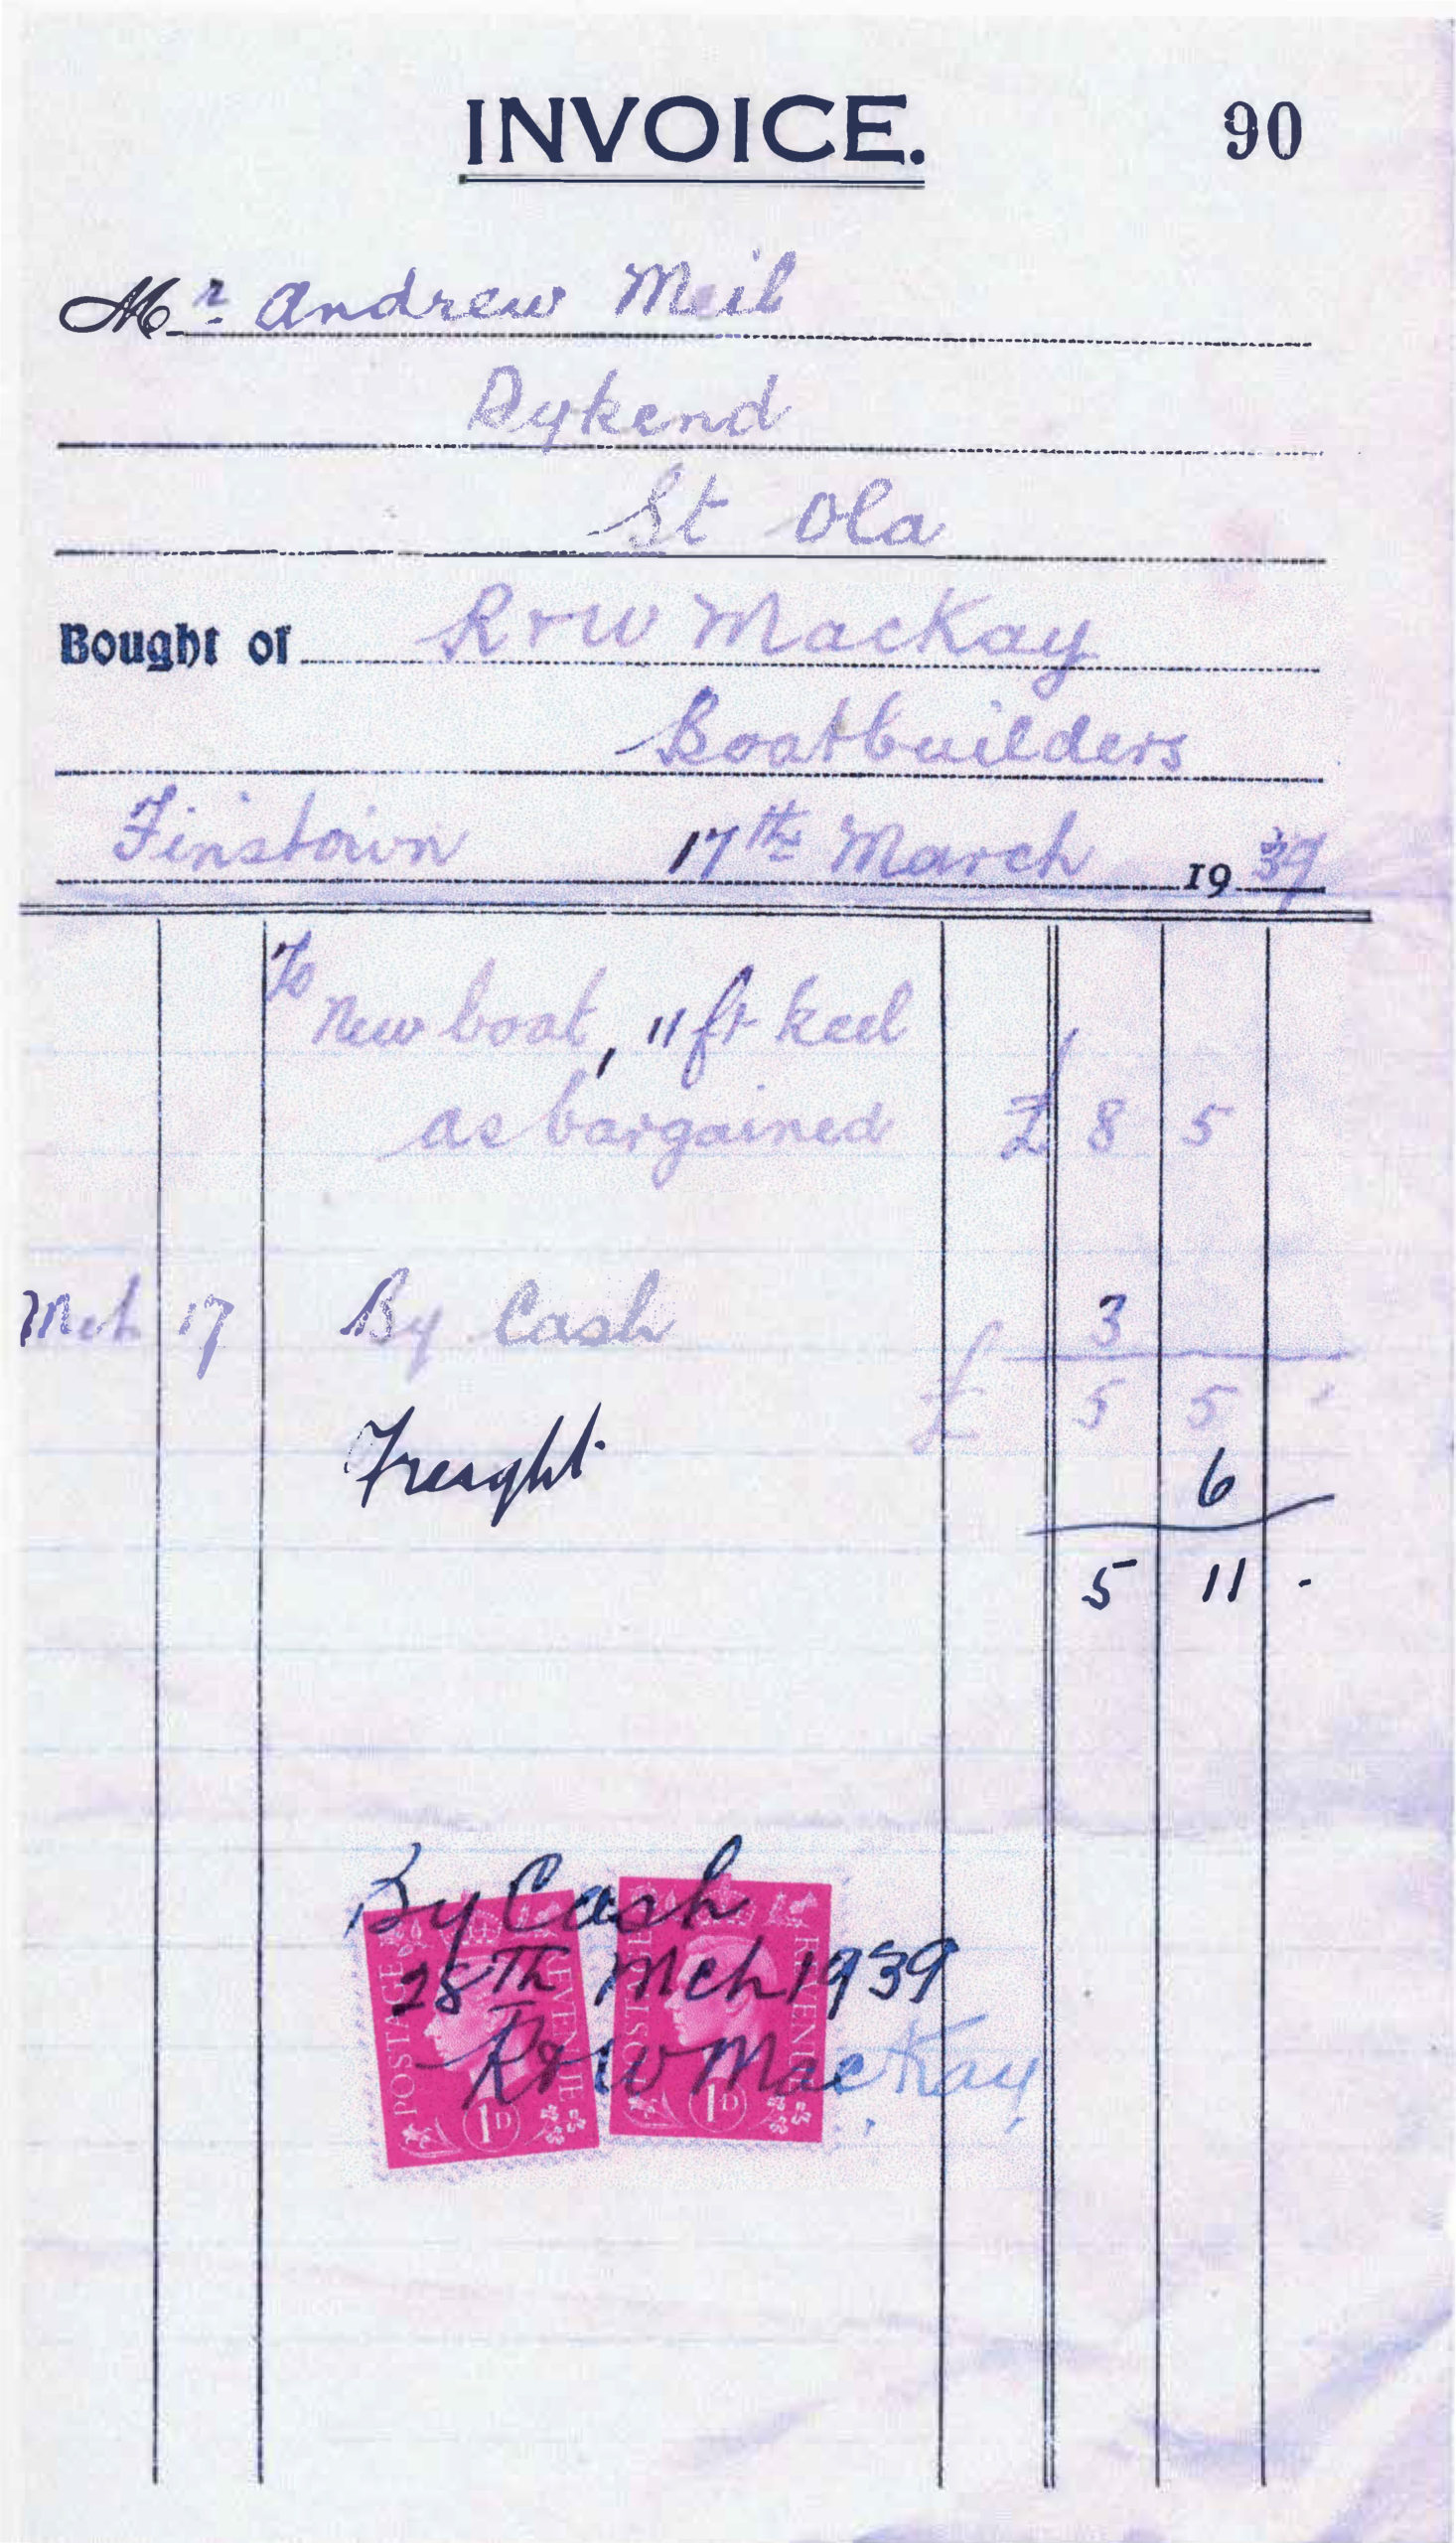 INVOICE. 90
Mr Andrew Meil
Dykend
St Ola
Bought of R & W Mackay
Boatbuilders
Finstown 17th March 1939
To
New boat, 11 ft keel
as bargained £ 8 5
Mch 17 By Cash 3
£ 5 5
Freight 6
5 11 -
By Cash
28TH Mch 1939
R & W MacKay
POSTAGE REVENUE 1D
POSTAGE REVENUE 1D